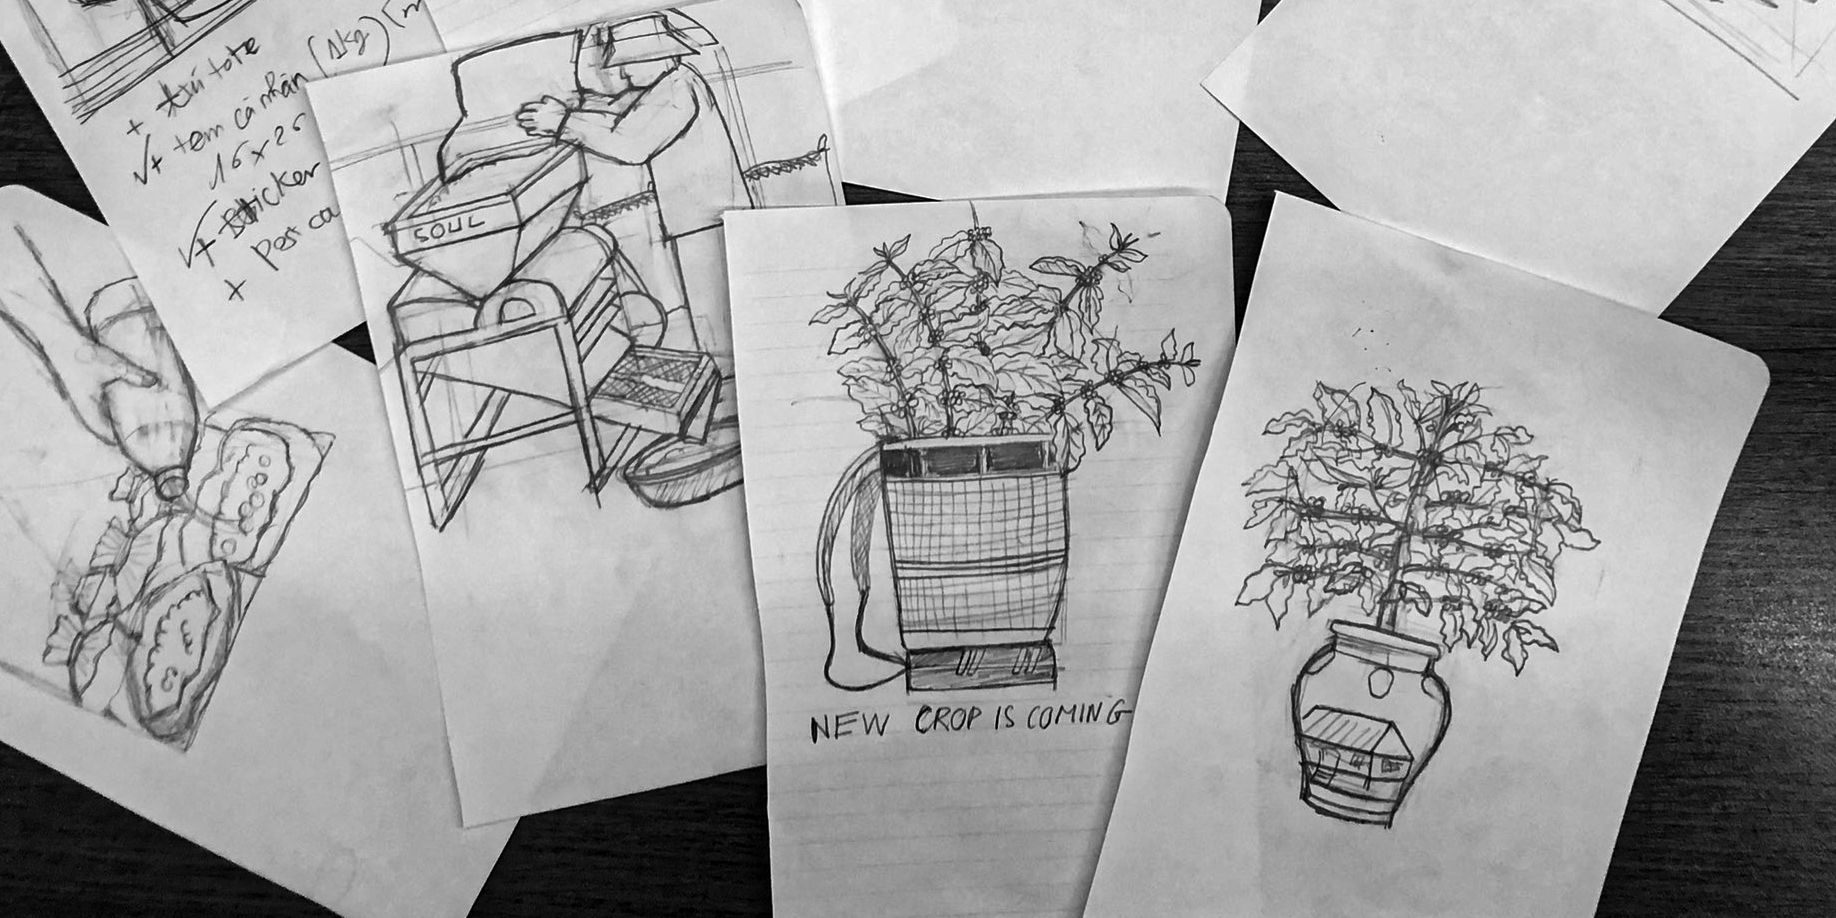 + túi tote
√+ tem cá nhân (1kg)
16 x 25
√+ Sticker
+ Pos ca
+
SOUL
NEW CROP IS COMING